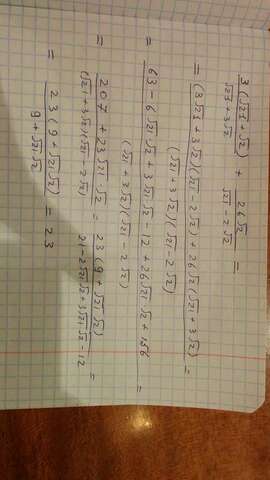 3(√21 + √2) / √21 + 3√2 + 26√2 / √21 - 2√2 =
= (3√21 + 3√2)(√21 - 2√2) + 26√2(√21 + 3√2) / (√21 + 3√2)(√21 - 2√2) =
= 63 - 6√21√2 + 3√21√2 - 12 + 26√21√2 + 156 / (√21 + 3√2)(√21 - 2√2) =
= 207 + 23√21·√2 / (√21 + 3√2)(√21 - 2√2) = 23(9 + √21√2) / 21 - 2√21√2 + 3√21√2 - 12 =
= 23(9 + √21√2) / 9 + √21√2 = 23